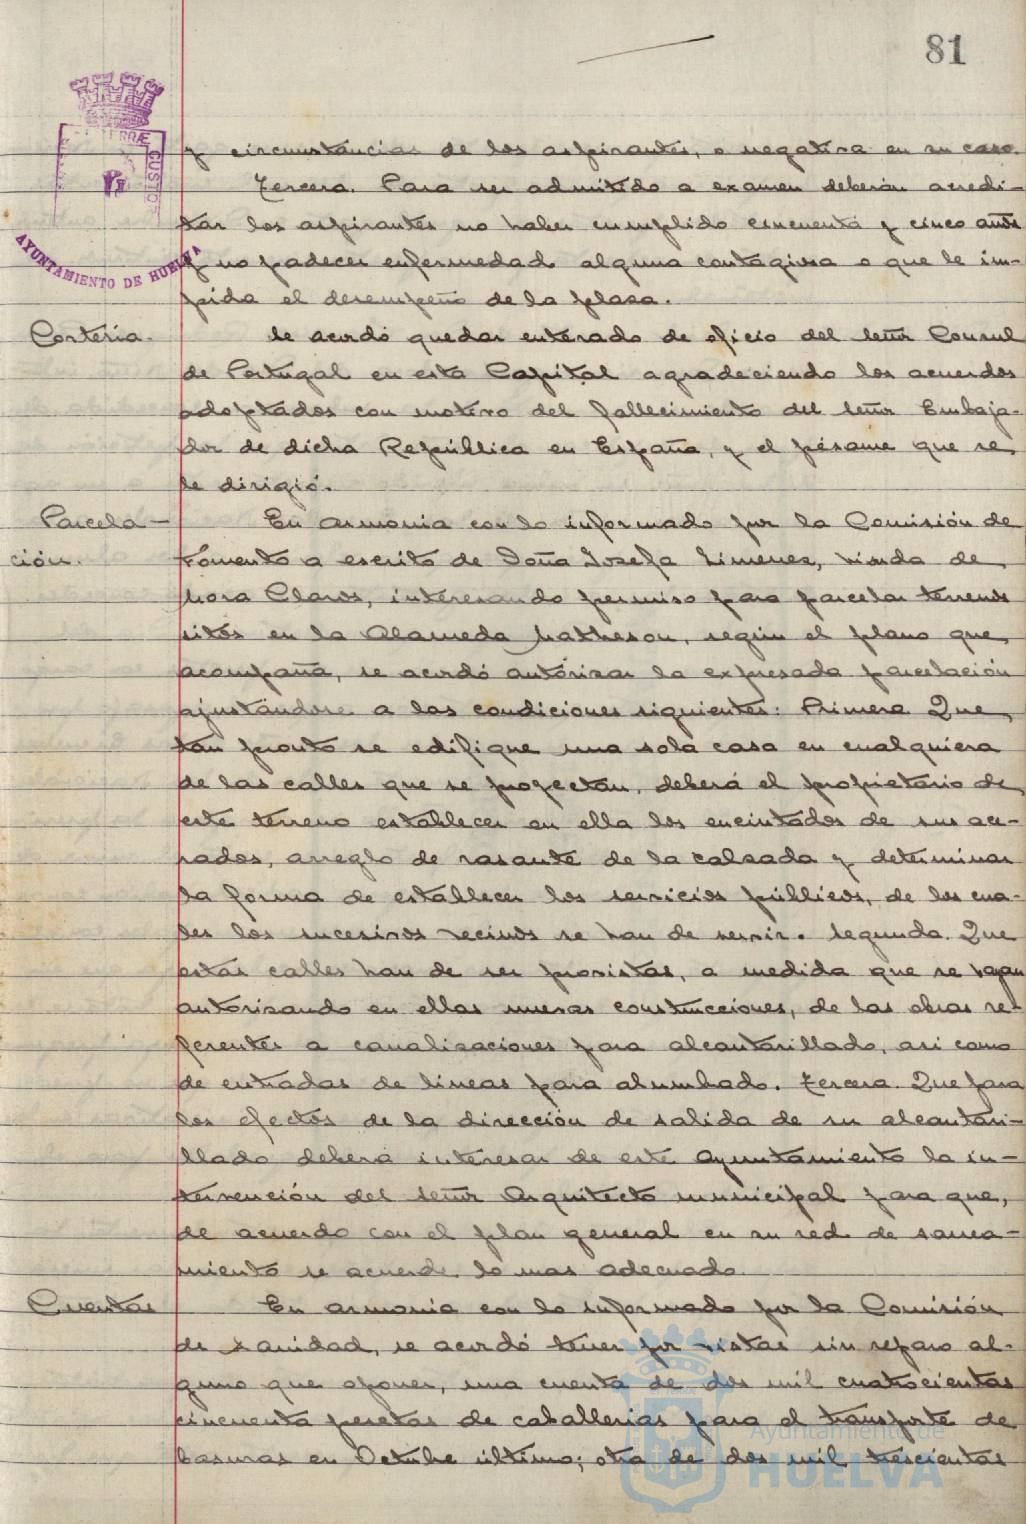 81
y circunstancias de los aspirantes, o negativa en su caso.
Tercera. Para ser admitido a examen deberán acredi-
tar los aspirantes no haber cumplido cincuenta y cinco años
y no padecer enfermedad alguna contagiosa o que le im-
pida el desempeño de la plaza.
AYUNTAMIENTO DE HUELVA
CUSTOD
Cortesía.
Se acordó quedar enterado de oficio del señor Consul
de Portugal en esta Capital agradeciendo los acuerdos
adoptados con motivo del fallecimiento del señor Embaja-
dor de dicha República en España, y el pésame que se
le dirigió.
Parcela-
ción.
En armonia con lo informado por la Comisión de
Fomento a escrito de Doña Josefa Jimenez, viuda de
Mora Claros, interesando permiso para parcelar terrenos
sitos en la Alameda Matheson, según el plano que
acompaña, se acordó autorizar la expresada parcelación
ajustándose a las condiciones siguientes: Primera Que
tan pronto se edifique una sola casa en cualquiera
de las calles que se proyectan, deberá el propietario de
este terreno establecer en ella los encintados de sus ace-
rados, arreglo de rasante de la calzada y determinar
la forma de establecer los servicios públicos, de los cua-
les los sucesivos vecinos se han de servir. Segunda. Que
estas calles han de ser provistas, a medida que se vayan
autorizando en ellas nuevas construcciones, de las obras re-
ferentes a canalizaciones para alcantarillado, asi como
de entradas de lineas para alumbado. Tercera. Que para
los efectos de la dirección de salida de su alcantari-
llado deberá interesar de este Ayuntamiento la in-
tervención del señor Arquitecto municipal para que,
de acuerdo con el plan general en su red de sanea-
miento se acuerde lo mas adecuado.
Cuentas
En armonia con lo informado por la Comisión
de Sanidad, se acordó tener por vistas sin reparo al-
guno que oponer, una cuenta de dos mil cuatrocientas
cincuenta pesetas de caballerias para el transporte de
basuras en Octubre último; otra de dos mil trescientas
Ayuntamiento de
HUELVA